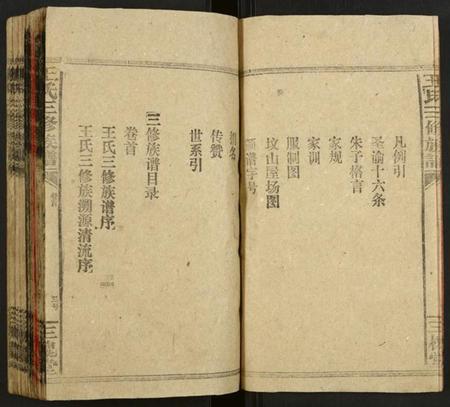 王氏三修族譜
三槐堂
凡例引
圣谕十六条
朱子格言
家规
家训
服制图
坟山屋场图
谱字号
名
传赞
世系引
三修族谱目录
卷首
王氏三修族谱序
王氏三修族溯源清流序
王氏三修族譜
卷首
三槐堂